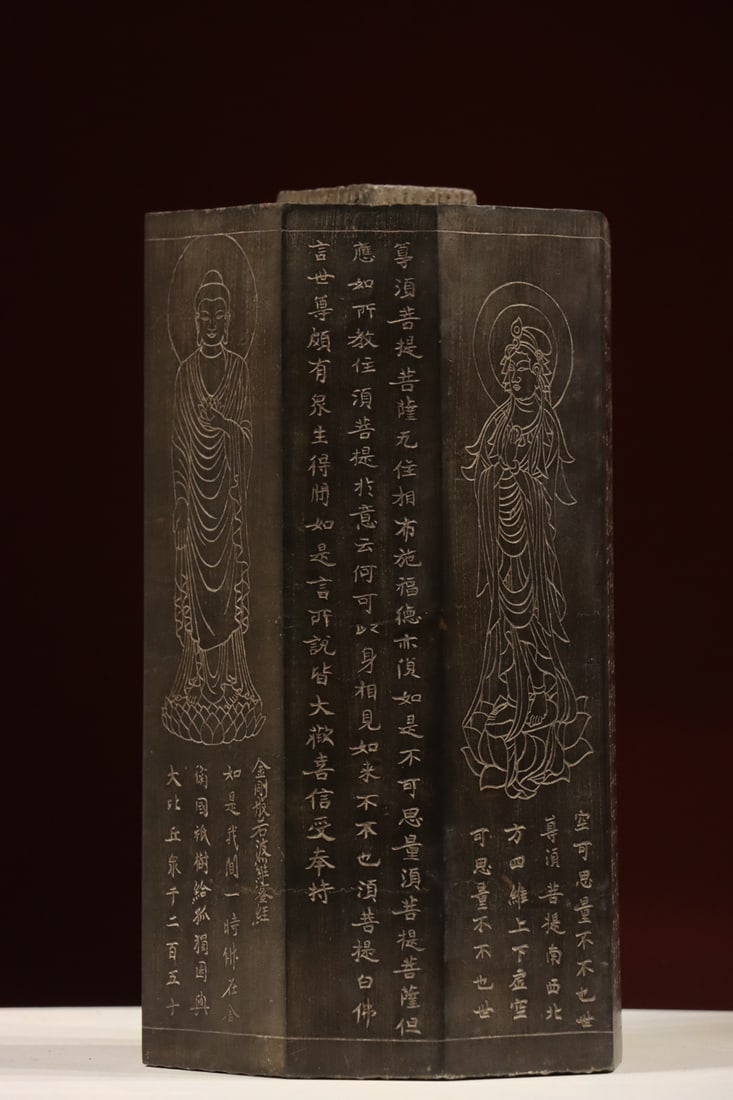 空可思量不不也世
尊須菩提南西北
方四維上下虛空
可思量不不也世
尊須菩提菩薩无住相布施福德亦復如是不可思量須菩提菩薩但
應如所教住須菩提於意云何可以身相見如来不不也須菩提白佛
言世尊頗有眾生得聞如是言所說皆大歡喜信受奉持
金剛般若波羅蜜經
如是我聞一時佛在舍
衛國祇樹給孤獨園與
大比丘眾千二百五十